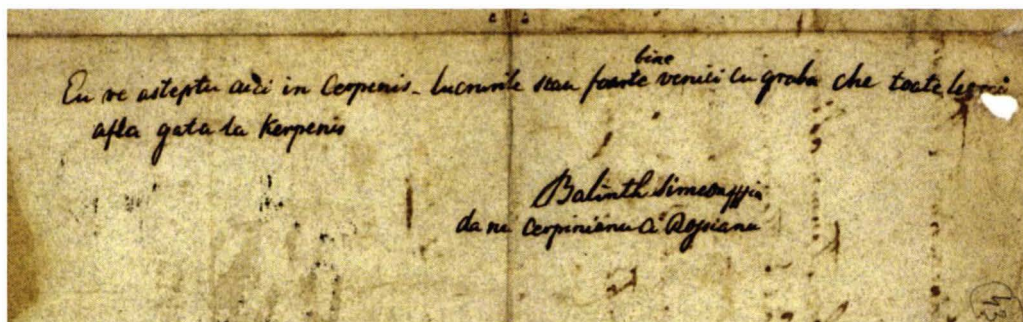 bine
Eu ve asteptu aici in Cerpenis. lucrurile stau foarte veniti cu graba che toate
afla gata la Kerpenis
Balinth Simeon
da nu Cerpinianu
43